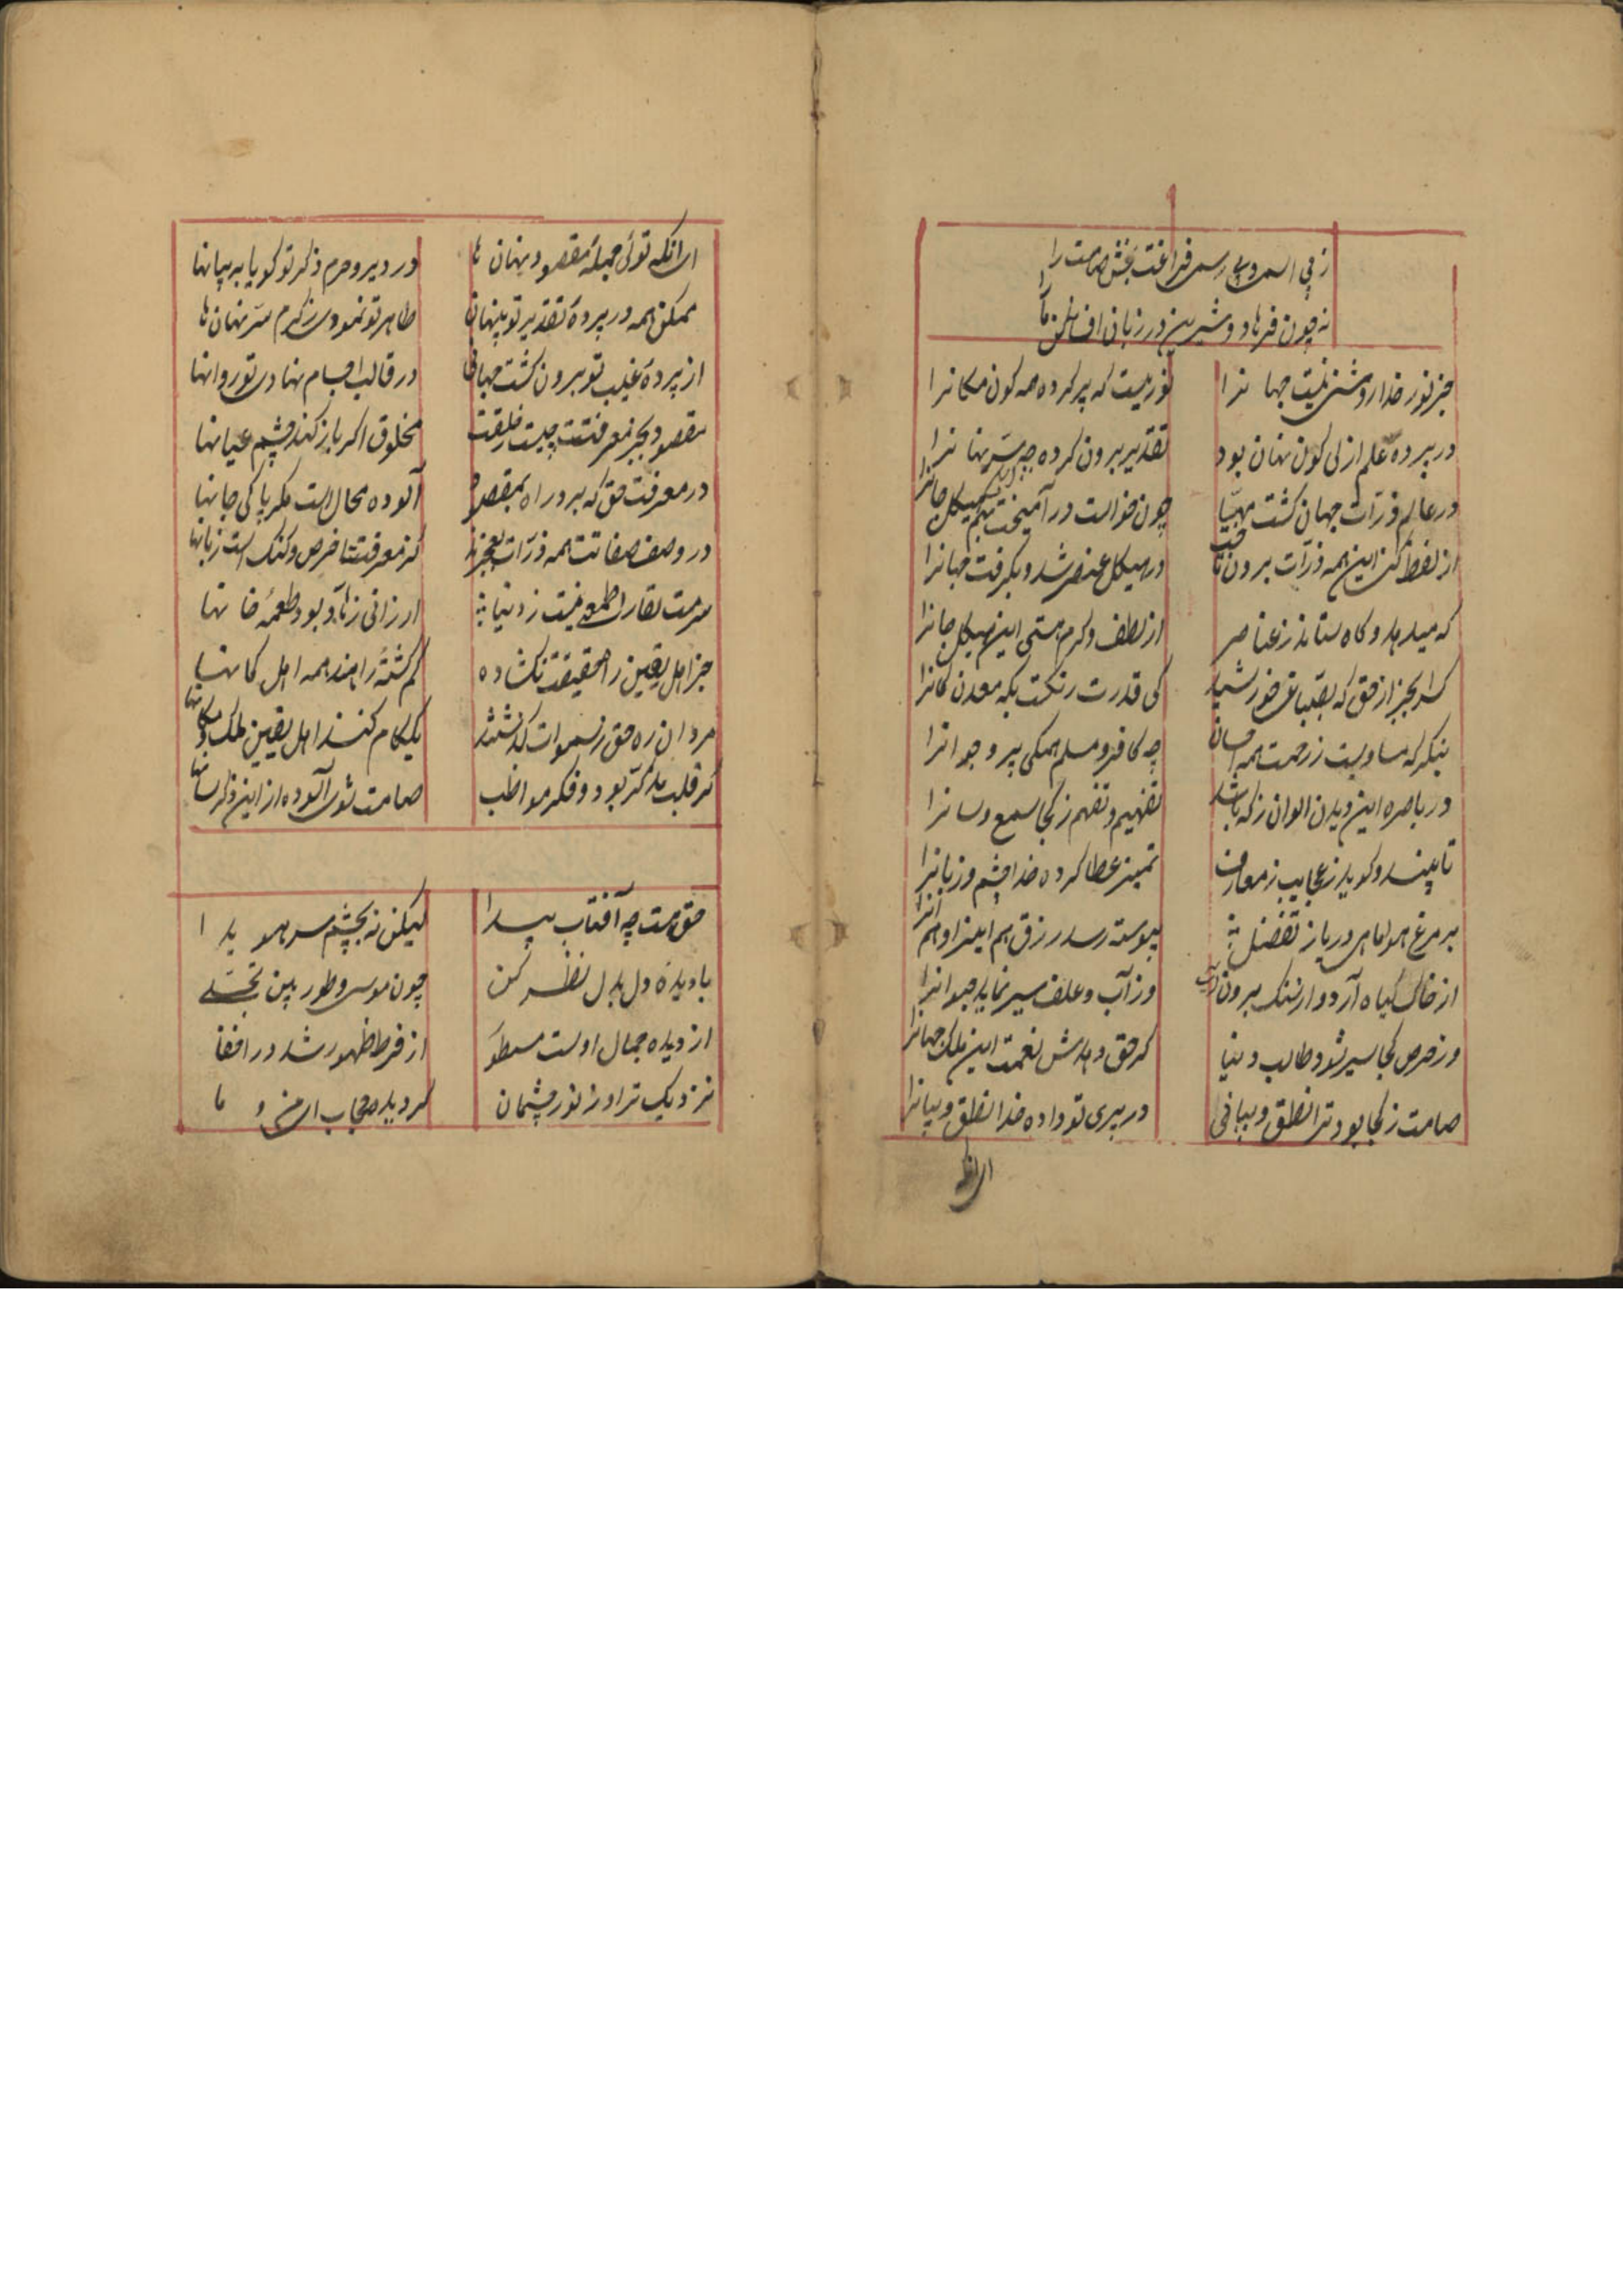 ز بی اسم و بی رسمی فراغت بخش صامت را
نه چون فرهاد و شیرین در زبان افکن ما را
جز نور خدا روشنی نیست جهانرا
نوریست که پر کرده همه کون مکانرا
در پرده علم ازلی کون نهان بود
تقدیر برون کرده چه سر نهانرا
در عالم ذرات جهان گشت مهیا
چون خواست در آمیخت بهم هیکل جانرا
از لفظ کن این همه ذرات برون
در هیکل عنصر شد و بگرفت جهانرا
که میدهد و گاه ستاند ز عناصر
از لطف و کرم هستی این هیکل جانرا
کرا بجز از حق که بقلب خورشید
کی قدرت رنگست بکه معدن کانرا
بنگر که مساویست ز رحمت همه احسان
چه کافر و مسلم همگی پیر و جوانرا
در باصره این دیدن الوان ز که باشد
تفهیم و تفهم ز کجا سمع و لسانرا
تا بیند و گوید ز عجایب ز معارف
تمییز عطا کرده خدا چشم و زبانرا
بر مرغ هوا ماهی دریا ز تفضل
پیوسته رسد رزق هم اینرا و هم آنرا
از خاک گیاه آرد و از سنگ برون آب
وز آب و علف سیر نماید حیوانرا
وز حرص کجا سیر شود طالب دنیا
گر حق دهدش نعمت این ملک جهانرا
صامت ز کجا بود ترا نطق و بیانی
در پیری تو داده خدا نطق و بیانرا
ای آنکه
ای آنکه توئی جمله مقصود نهان ها
در دیر و حرم ذکر تو گویا به بیانها
ممکن همه در پرده تقدیر تو پنهان
ظاهر تو نمودی ز کرم سر نهان ها
از پرده غیب تو برون گشت جهانی
در قالب اجسام نهادی تو روانها
مقصود بجز معرفتت چیست ز خلقت
مخلوق اگر باز کند چشم عیانها
در معرفت حق که برد راه بمقصود
آلوده محالست مگر پاکی جانها
در وصف صفاتت همه ذرات بعجزند
کز معرفتت اخرس و گنگ است زبانها
سرمست لقا را طمعی نیست ز دنیا
ارزانی زهاد بود طعمه خانها
جز اهل یقین ز حقیقت نگشاده
گم گشته راهند همه اهل گمانها
مردان ره حق ز سموات گذشتند
یک گام کنند اهل یقین ملک و مکانها
گر قلب مذکر بود و فکر مواظب
صامت شوی آلوده از این ذکر لسانها
حق هست چه آفتاب پیدا
لیکن نه بچشم سر هویدا
با دیده دل بدل نظر کن
چون موسی و طور بین تجلی
از دیده جمال اوست مسطور
از فرط ظهور شد در اخفا
نزدیک تر او ز نور چشمان
گردیده حجاب این من و ما